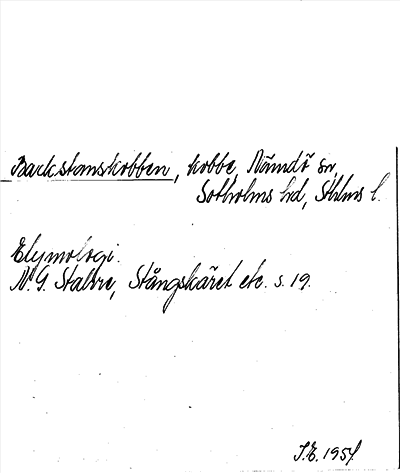 Backstomskobben, kobbe, Nämdö sn,
Sotholms hd, Sthlms l.
Etymologi.
N. G. Stahre, Stångskäret etc. s. 19.
S.E. 1954